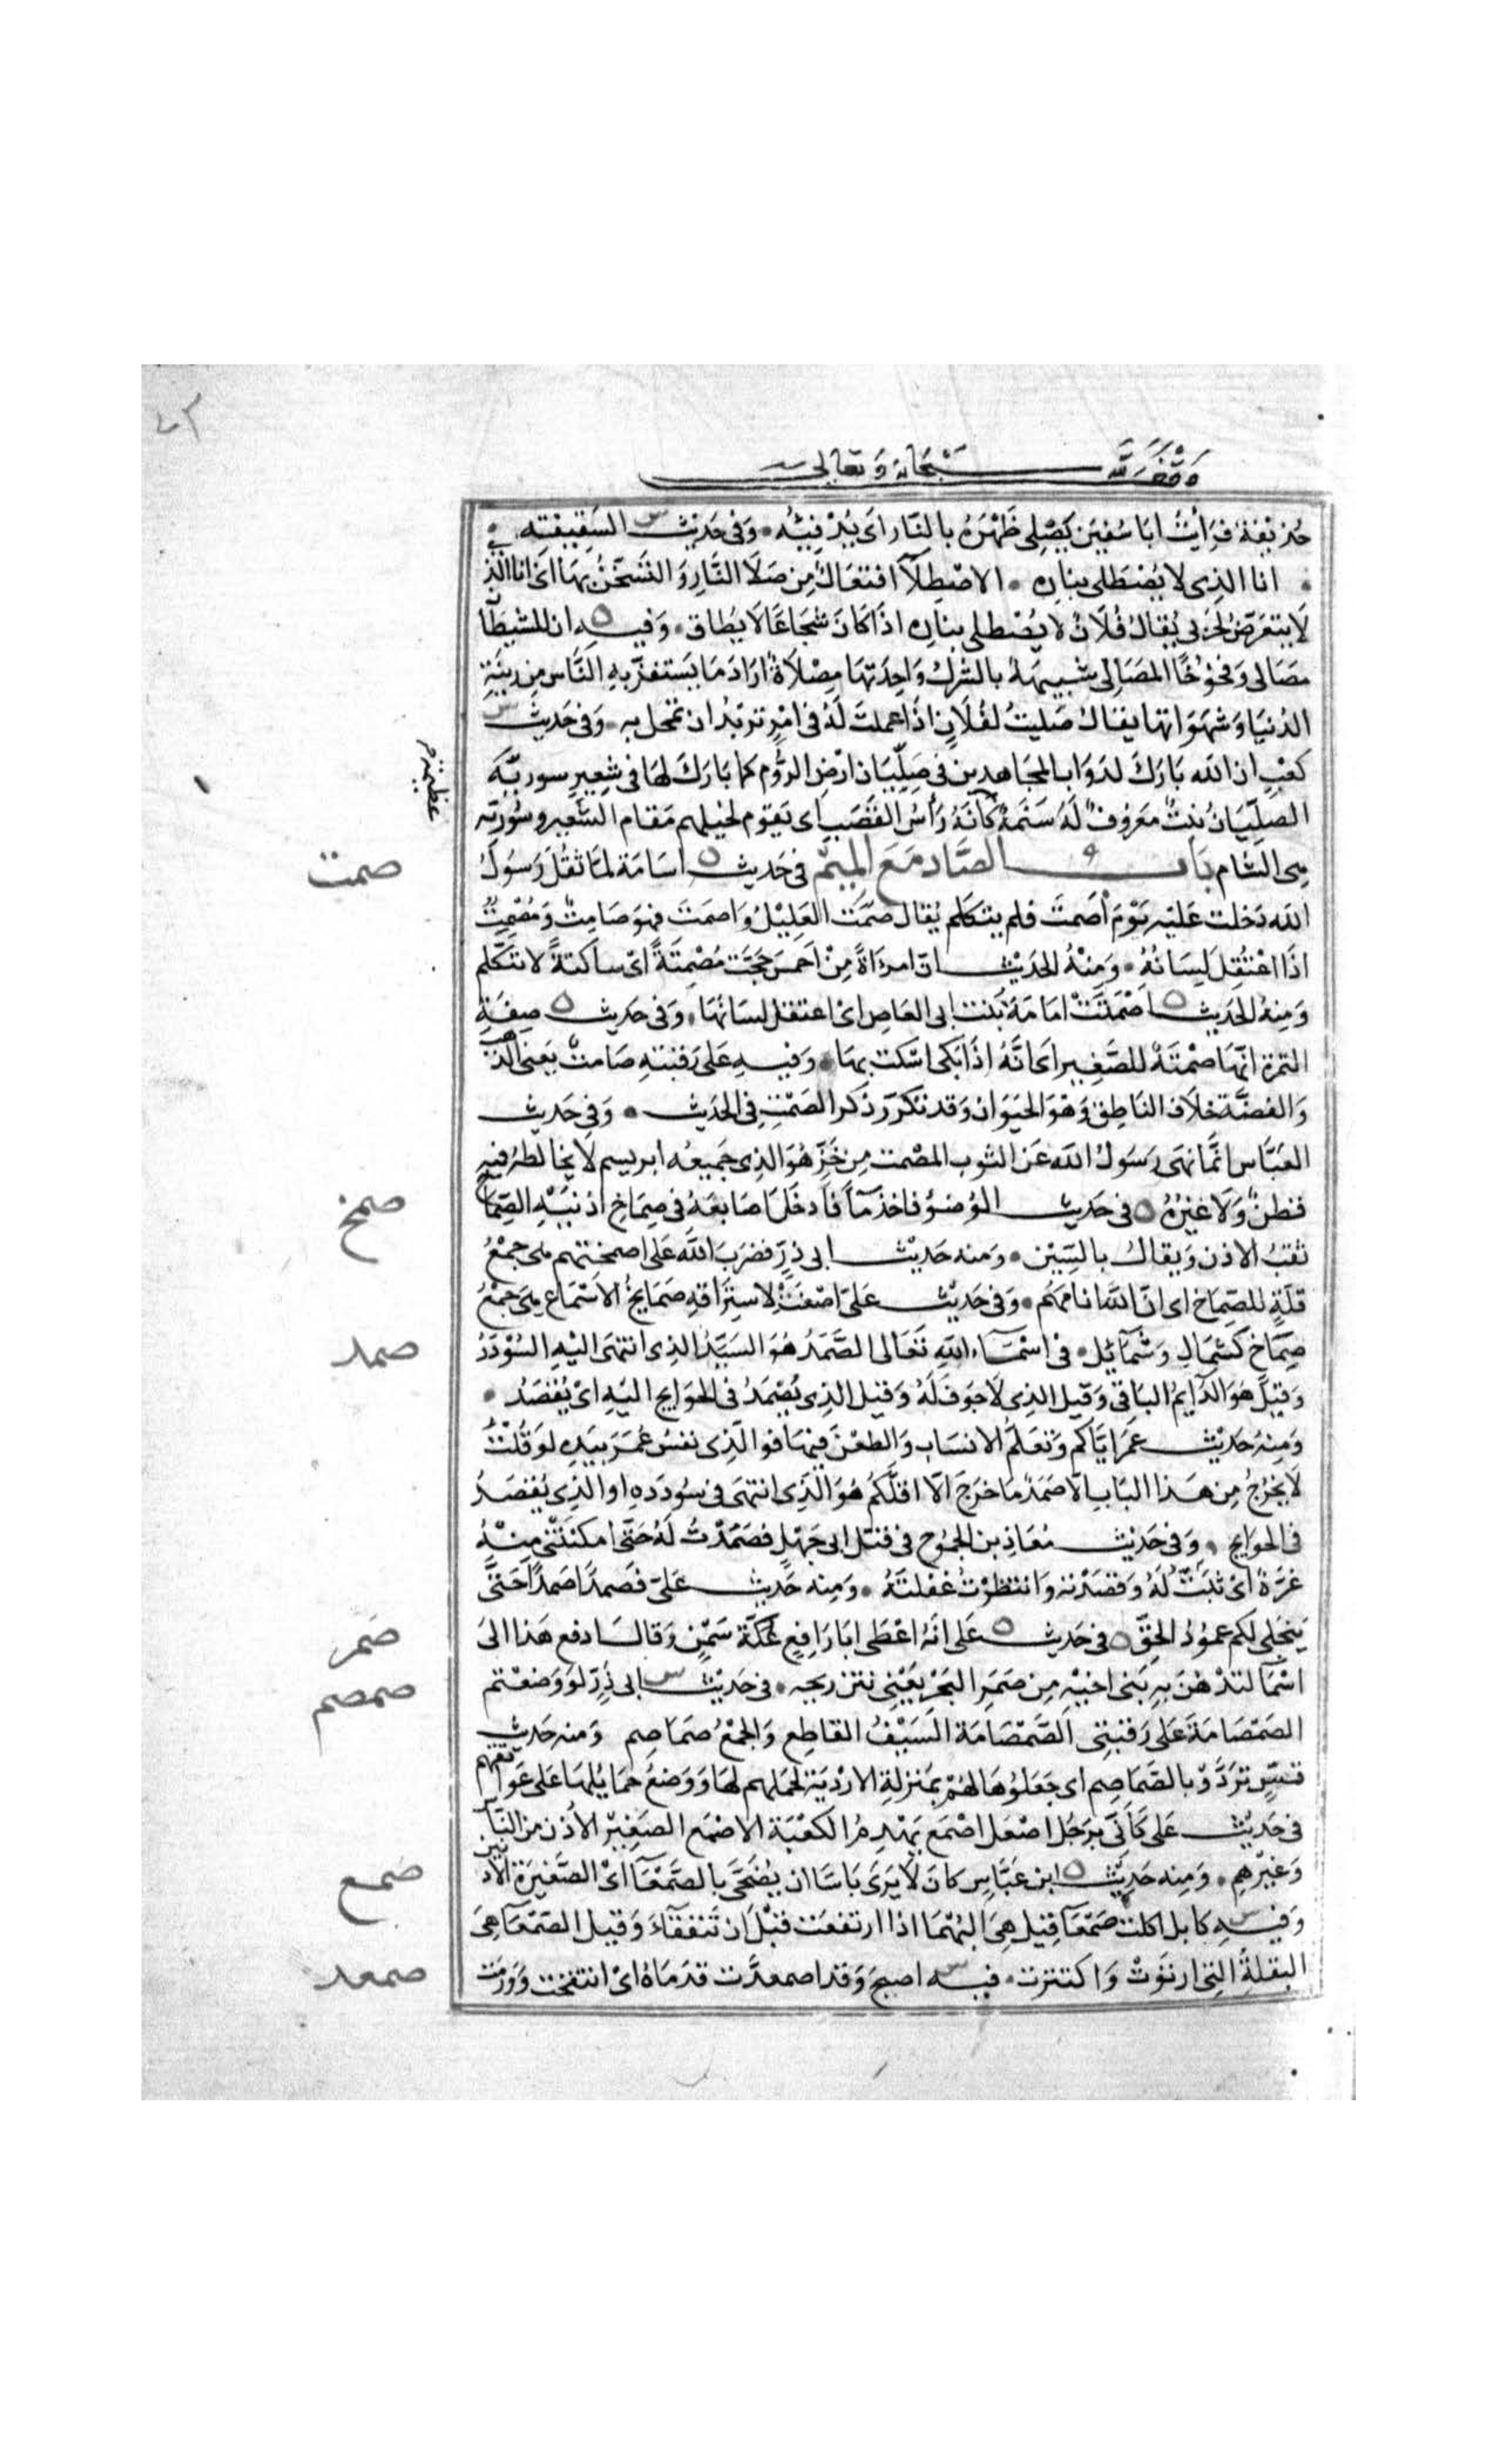 وقف لله سبحانه وتعالى
حذيفة فرأيت ابا سفين يصلى ظهره بالنار اى يدفيه وفى حديث السقيفة
انا الذى لا يصطلى بناره الاصطلاء افتعال من صلا النار والتسخن بها اى انا الذى
لا يتعرض لحربى يقال فلان لا يصطلى بناره اذا كان شجاعا لا يطاق وفيه ان للشيطان
مصالى وفخوخا المصالى شبيهة بالشرك واحدتها مصلاة اراد ما يستفز به الناس من زينة
الدنيا وشهواتها يقال صليت لفلان اذا عملت له فى امر تريد ان تمحل به وفى حديث
كعب ان الله بارك لدواب المجاهدين فى صليان ارض الروم كما بارك لها فى شعير سورية
الصليان نبت معروف له سنمة كانه رأس القصب اى يقوم لخيلهم مقام الشعير وسورية
عظيمة
هى الشام باب الصاد مع الميم فى حديث اسامة لما ثقل رسول
صمت
الله دخلت عليه يوم اصمت فلم يتكلم يقال صمت العليل واصمت فهو صامت ومصمت
اذا اعتقل لسانه ومنه الحديث ان امرءاة من احمس حجت مصمتة اى ساكتة لا تتكلم
ومنه الحديث اصمتت امامة بنت ابى العاص اى اعتقل لسانها وفى حديث صفة
التمرة انها صمتة للصغير اى انه اذا بكى اسكت بها وفيه على رقبته صامت يعنى الذهب
والفضة خلاف الناطق وهو الحيوان وقد تكرر ذكر الصمت فى الحديث وفى حديث
العباس انما نهى رسول الله عن الثوب المصمت من خز هو الذى جميعه ابريسم لا يخالطه فيه
قطن ولا غيره فى حديث الوضوء فاخذ ماء فادخل اصابعه فى صماخ اذنيه الصماخ
صمخ
ثقب الاذن ويقال بالسين ومنه حديث ابى ذر فضرب الله على اصمختهم هى جمع
قلة للصماخ اى ان الله انامهم وفى حديث على اصغت لاستراقه صمايخ الاسماع هى جمع
صماخ كشمال وشمائل فى اسماء الله تعالى الصمد هو السيد الذى انتهى اليه السؤدد
صمد
وقيل هو الدايم الباقى وقيل الذى لا جوف له وقيل الذى يصمد فى الحوايج اليه اى يقصد
ومنه حديث عمر اياكم وتعلم الانساب والطعن فيها فوالذى نفس عمر بيده لو قلت
لا يخرج من هذا الباب الا صمد ما خرج الا اقلكم هو الذى انتهى فى سودده او الذى يقصد
فى الحوايج وفى حديث معاذ بن الجموح فى قتل ابى جهل فصمدت له حتى امكنتنى منه
غرة اى ثبت له وقصدته وانتظرت غفلته ومنه حديث على فصمدا صمدا حتى
ينجلى لكم عمود الحق فى حديث على انه اعطى ابا رافع عكة سمن وقال ادفع هذا الى
صمر
اسما لتدهن به بنى اخيه من صمر البحر يعنى نتن ريحه فى حديث ابى ذر لو وضعتم
صمصم
الصمصامة على رقبتى الصمصامة السيف القاطع والجمع صماصم ومنه حديث
قس تردوا بالصماصم اى جعلوها لهم بمنزلة الاردية لحملهم لها ووضع حمايلها على عواتقهم
فى حديث على كأنى برجل اصعل اصمع يهدم الكعبة الاصمع الصغير الاذن من الناس
وغيرهم ومنه حديث ابن عباس كان لا يرى باسا ان يضحى بالصمعا اى الصغيرة الاذنين
صمع
وفيه كابل اكلت صمعا قيل هى البهما اذا ارتفعت قبل ان تنفقاء وقيل الصمعا هى
البقلة التى ارتوت واكتنزت فيه اصبح وقد اصمعدت قدماه اى انتفخت وورمت
صمعد